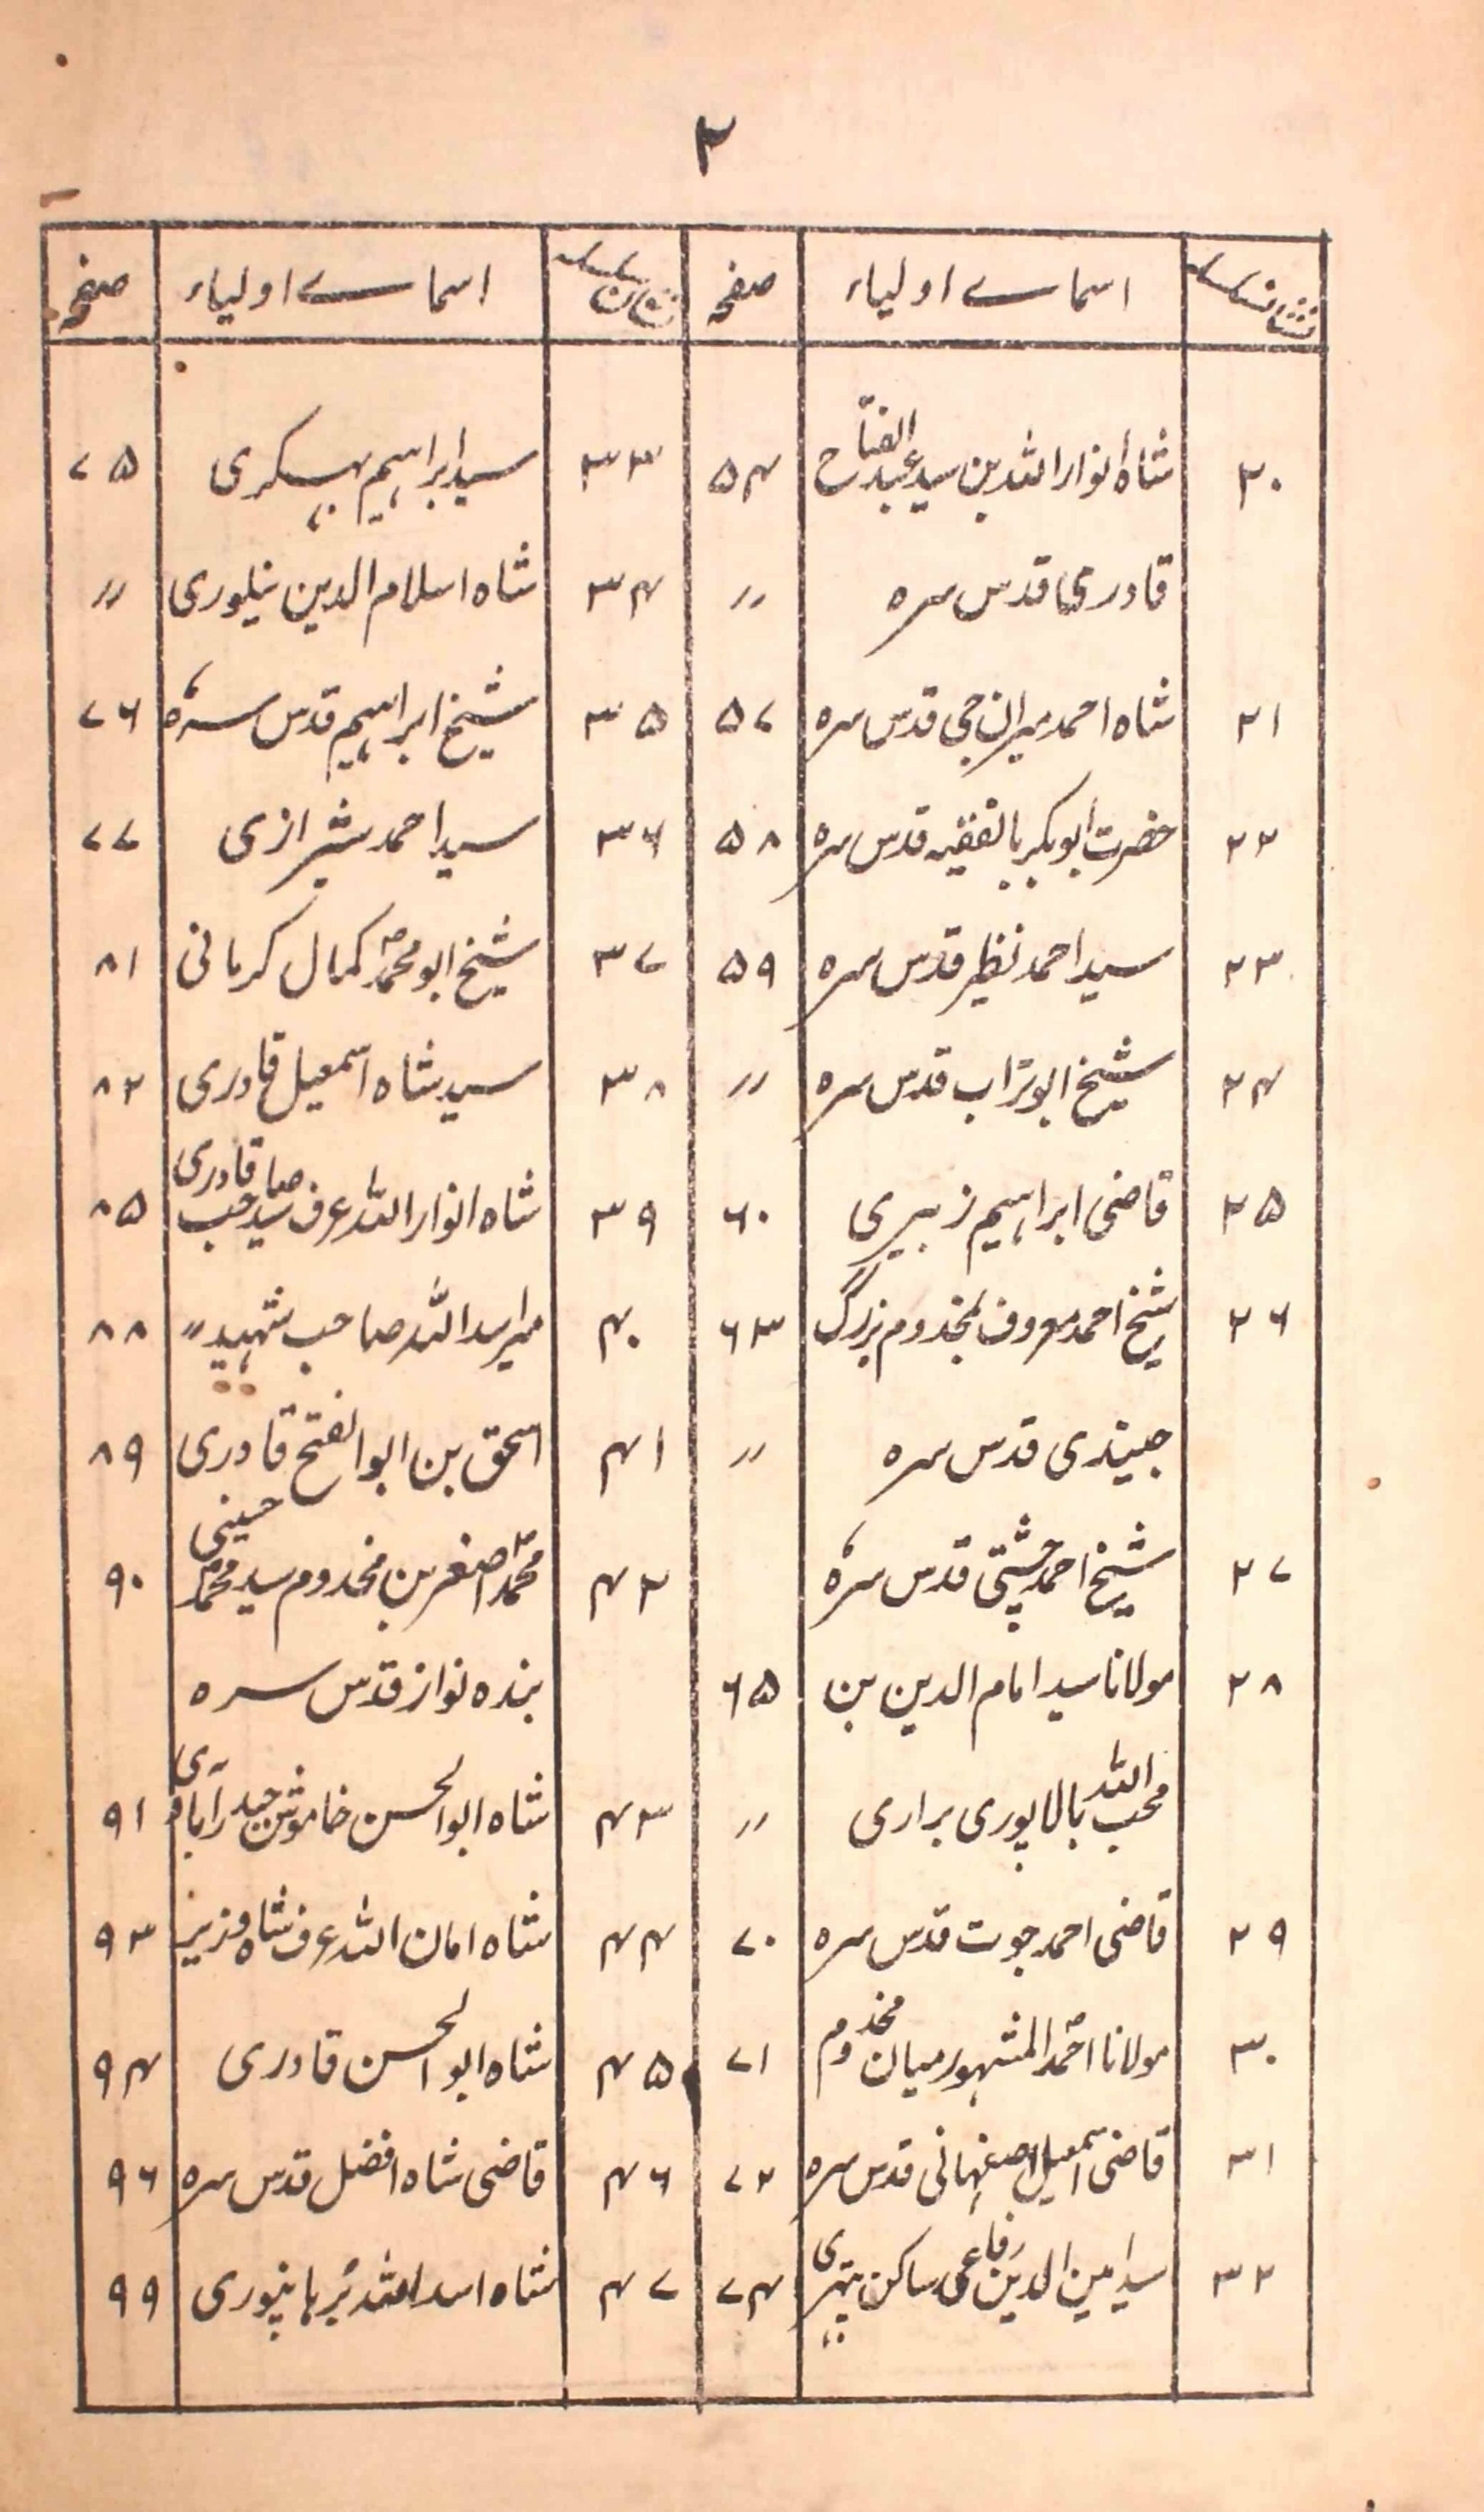 ۲
نشان سلسلہ اسماے اولیاء صفحہ نشان سلسلہ اسماے اولیاء صفحہ
۲۰ شاہ انوار اللہ بن سید عبد الفتاح ۵۴ ۳۳ سید ابراہیم بھکری ۷۵
قادری قدس سرہ // ۳۴ شاہ اسلام الدین نیلوری //
۲۱ شاہ احمد میران جی قدس سرہ ۵۷ ۳۵ شیخ ابراہیم قدس سرہٗ ۷۶
۲۲ حضرت ابوبکر بالفقیہ قدس سرہ ۵۸ ۳۶ سید احمد شیرازی ۷۷
۲۳ سید احمد نظیر قدس سرہ ۵۹ ۳۷ شیخ ابو محمدؐ کمال کرمانی ۸۱
۲۴ شیخ ابو تراب قدس سرہ // ۳۸ سید شاہ اسمعیل قادری ۸۲
۲۵ قاضی ابراہیم زبیری ۶۰ ۳۹ شاہ انوار اللہ عرف سید صاحب قادری ۸۵
۲۶ شیخ احمد معروف بمخدوم بزرگ ۶۳ ۴۰ میر اسد اللہ صاحب شہید // ۸۸
جنیدی قدس سرہ // ۴۱ اسحق بن ابو الفتح قادری ۸۹
۲۷ شیخ احمد چشتی قدس سرہٗ ۴۲ محمدؐ اصغر بن مخدوم سید محمدؐ حسینی ۹۰
۲۸ مولانا سید امام الدین بن ۶۵ بندہ نواز قدس سرہ
محب اللہ بالاپوری براری // ۴۳ شاہ ابو الحسن خاموش حیدرآبادی ۹۱
۲۹ قاضی احمد جوت قدس سرہ ۷۰ ۴۴ شاہ امان اللہ عرف شاہ وزیر ۹۳
۳۰ مولانا احمدؐ المشہور میان مخدوم ۷۱ ۴۵ شاہ ابو الحسن قادری ۹۴
۳۱ قاضی اسمعیل اصفہانی قدس سرہ ۷۲ ۴۶ قاضی شاہ افضل قدس سرہ ۹۶
۳۲ سید امین الدین رفاعی ساکن ۷۴ ۴۷ شاہ اسد اللہ بُرہانپوری ۹۹